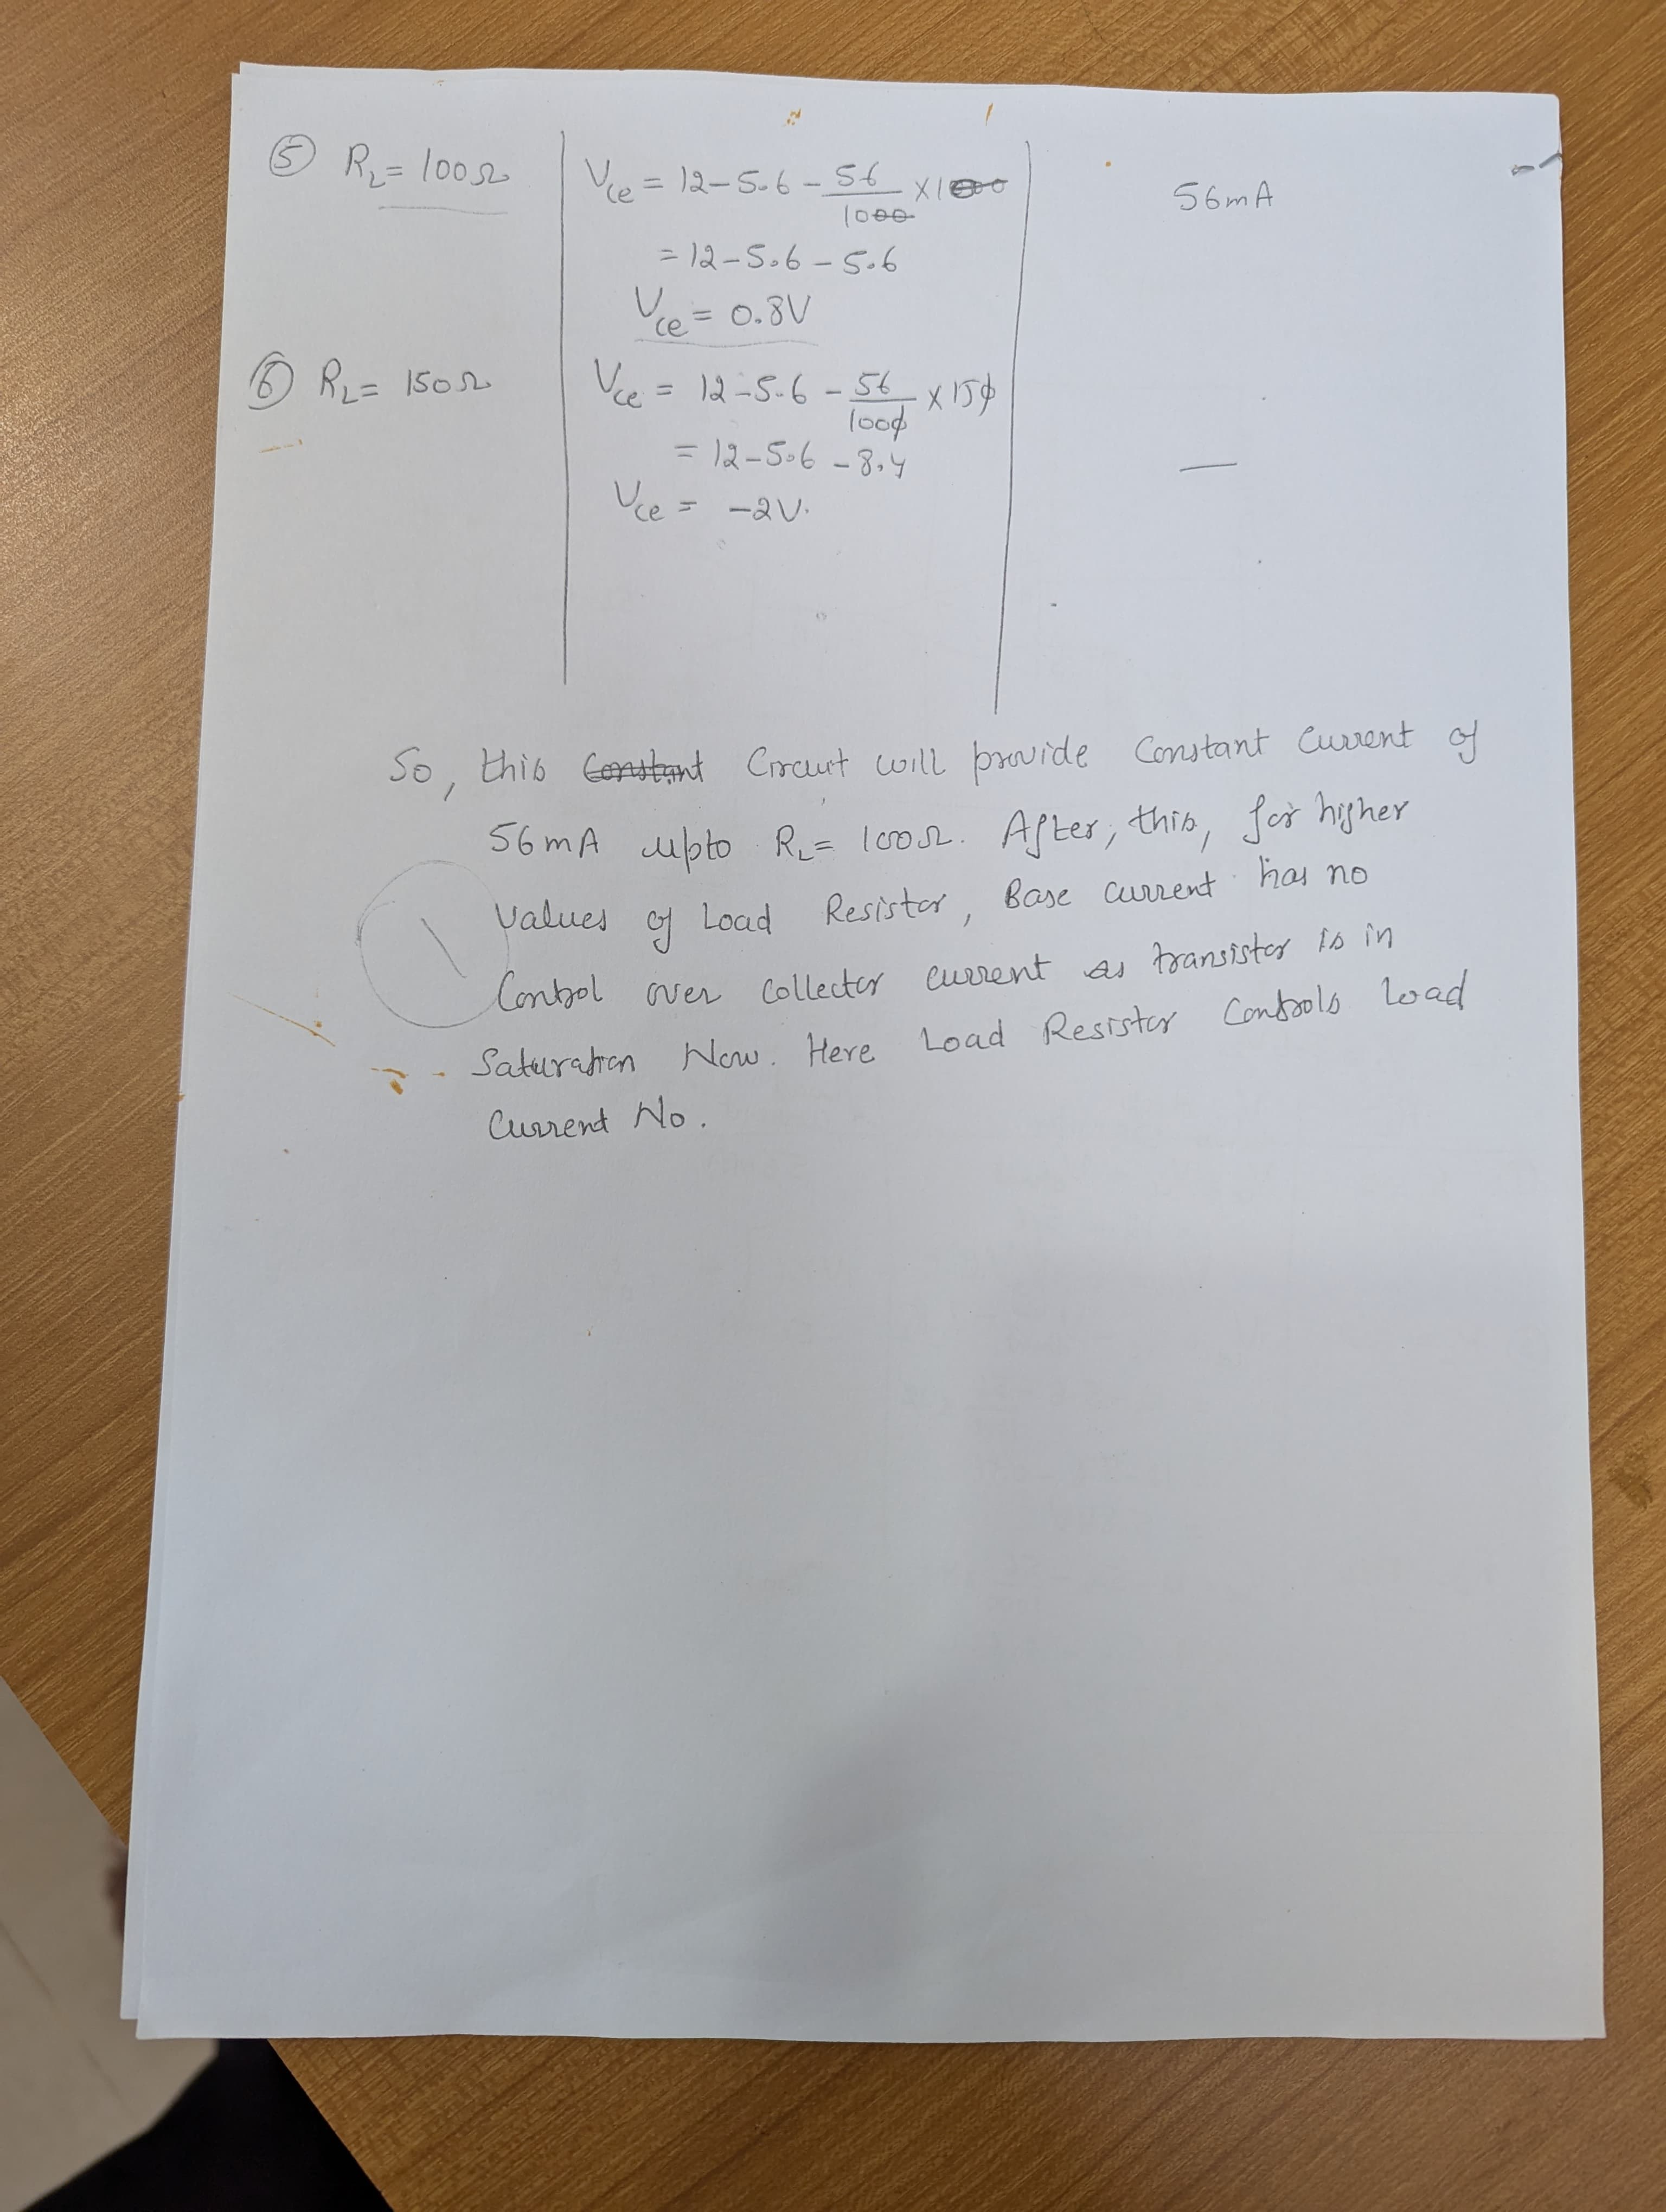 ⑤ R_L = 100Ω
V_ce = 12-5.6 - 56/1000 × 1000
56mA
= 12-5.6 - 5.6
V_ce = 0.8V
⑥ R_L = 150Ω
V_ce = 12-5.6 - 56/1000 × 150
= 12-5.6 - 8.4
—
V_ce = -2V.
So, this Constant Circuit will provide Constant Current of
56mA upto R_L = 100Ω. After, this, for higher
Values of Load Resistor, Base current has no
Control over Collector current as transistor is in
Saturation Now. Here Load Resistor Controls Load
Current No.